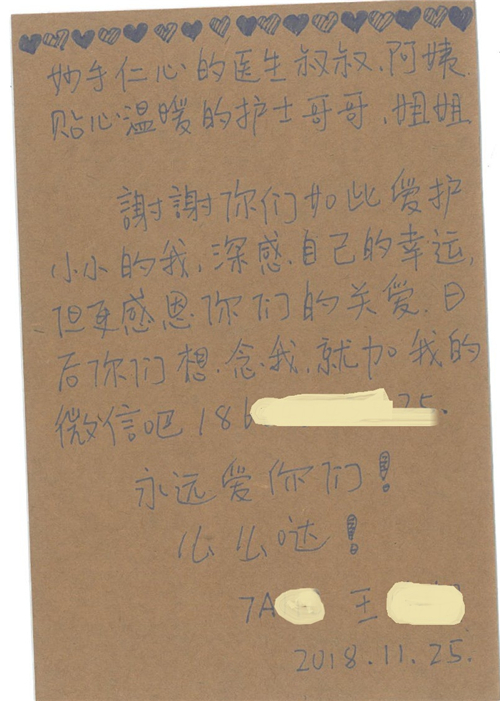 妙手仁心的医生叔叔、阿姨
贴心温暖的护士哥哥、姐姐
謝謝你们如此爱护
小小的我，深感自己的幸运，
但更感恩你们的关爱，日
后你们想念我，就加我的
微信吧186 25.
永远爱你们！
么么哒！
7A 王
2018.11.25.